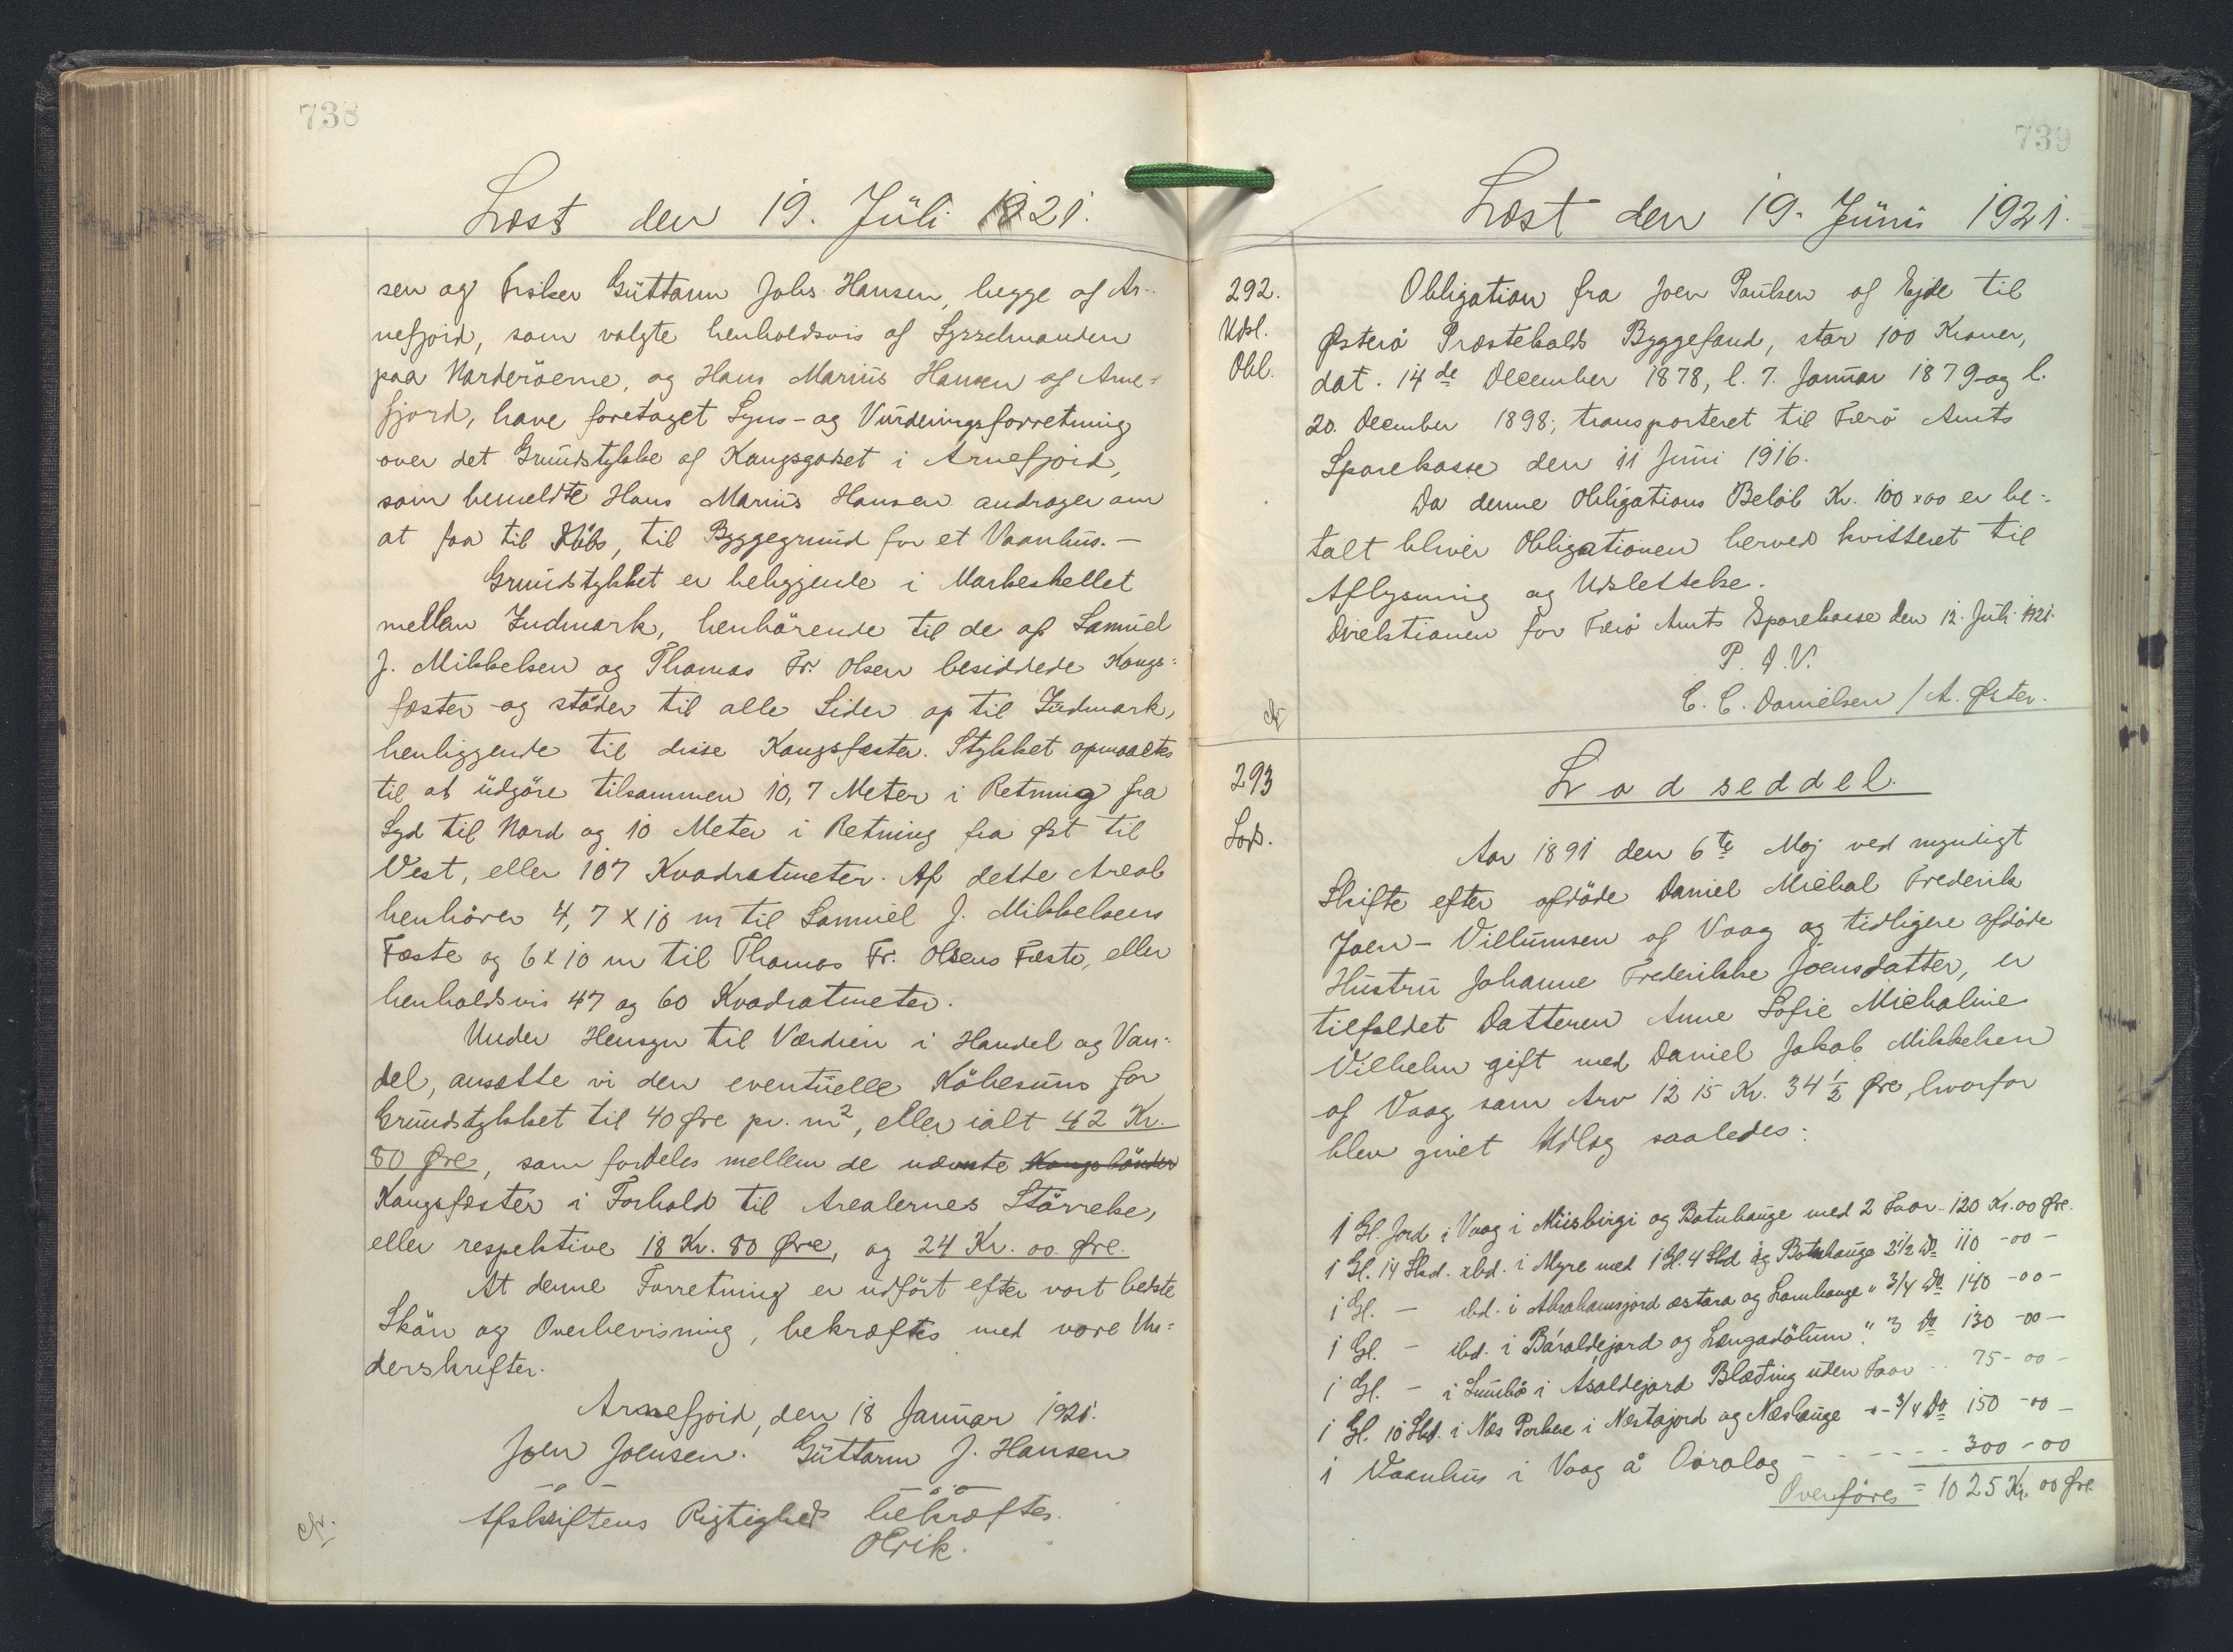 738
Læst den 19. Juli 1921.
sen og Fisker Guttorm Johs Hansen, begge af Ar-
nefjord, som valgte henholdsvis af Sysselmanden
paa Norderöerne, og Hans Marius Hansen af Arne-
fjord, have foretaget Syns- og Vurderingsforretning
over det Grundstykke af Kongsgodset i Arnefjord,
som bemeldte Hans Marius Hansen andrager om
at faa til Köbs, til Byggegrund for et Vaanhus. -
Grundstykket er beliggende i Markeskellet
mellem Indmark, henhörende til de af Samuel
J. Mikkelsen og Thomas Fr. Olsen besiddede Kongs-
fæster og stöder til alle Sider op til Indmark,
henliggende til disse Kongsfæster. Stykket opmaaltes
til at udgöre tilsammen 10,7 Meter i Retning fra
Syd til Nord og 10 Meter i Retning fra Øst til
Vest, eller 107 Kvadratmeter. Af dette Areal
henhörer 4,7 x 10 m til Samuel J. Mikkelsens
Fæste og 6 x 10 m til Thomas Fr. Olsens Fæste, eller
henholdsvis 47 og 60 Kvadratmeter.
Under Hensyn til Værdien i Handel og Van-
del, ansætte vi den eventuelle Köbesum for
Grundstykket til 40 Øre pr. m², eller ialt 42 Kr.
80 Øre, som fordeles mellem de nævnte Kongsbönder
Kongsfæster i Forhold til Arealernes Störrelse,
eller respektive 18 Kr. 80 Øre, og 24 Kr. 00 Øre.
At denne Forretning er udfört efter vort bedste
Skön og Overbevisning, bekræftes med vore Un-
derskrifter.
Arnefjord, den 18 Januar 1921.
Joen Joensen. Guttorm J. Hansen
-o- -o-o-
Afskriftens Rigtighed bekræftes.
Olrik.
cfr.
739
Læst den 19. Juni 1921.
292.
Udsl.
Obl.
Obligation fra Joen Poulsen af Ejde til
Østerö Præstekalds Byggefond, stor 100 Kroner,
dat. 14de December 1878, l. 7. Januar 1879 og l.
20. December 1898; transporteret til Færö Amts
Sparekasse den 11 Juni 1916.
Da denne Obligations Belöb Kr. 100 x 00 er be-
talt bliver Obligationen herved kvitteret til
Aflysning og Udslettelse.
Direktionen for Færö Amts Sparekasse den 12. Juli 1921.
P. D. V.
C. C. Danielsen / A. Øster.
cfr
293
Lods.
Lodseddel.
Aar 1891 den 6te Maj ved myndigt
Skifte efter afdöde Daniel Michal Frederik
Joen-Villumsen af Vaag og tidligere afdöde
Hustru Johanne Frederikke Joensdatter, er
tilfaldet Datteren Anne Sofie Michaline
Vilhelm gift med Daniel Jakob Mikkelsen
af Vaag som Arv 1215 Kr. 34 1/2 Øre, hvorfor
blev givet Udlæg saaledes:
1 Gl. Jord i Vaag i Miisbirgi og Botnhauge med 2 Faar.. 120 Kr. 00 Øre.
1 Gl. 14 Skd. ibd. i Myre med 1 Gl. 4 Skd og Botnhauge 2 1/2 Do 110 - 00 -
1 Gl. - ibd. i Abrahamsjord æstara og Lamhauge " 3/4 Do 140 - 00 -
1 Gl. - ibd. i Báraldejord og Længadölum " 3 Do 130 - 00 -
1 Gl. - i Sumbö i Asaldejord Blæding uden Faar .. 75 - 00 -
1 Gl. 10 Skd. i Næs Porkere i Nestajord og Næshauge -"- 3/4 Do 150 - 00 -
1 Vaanhus i Vaag å Oöralag - - - - - - 300 - 00
Overföres = 1025 Kr. 00 Øre.